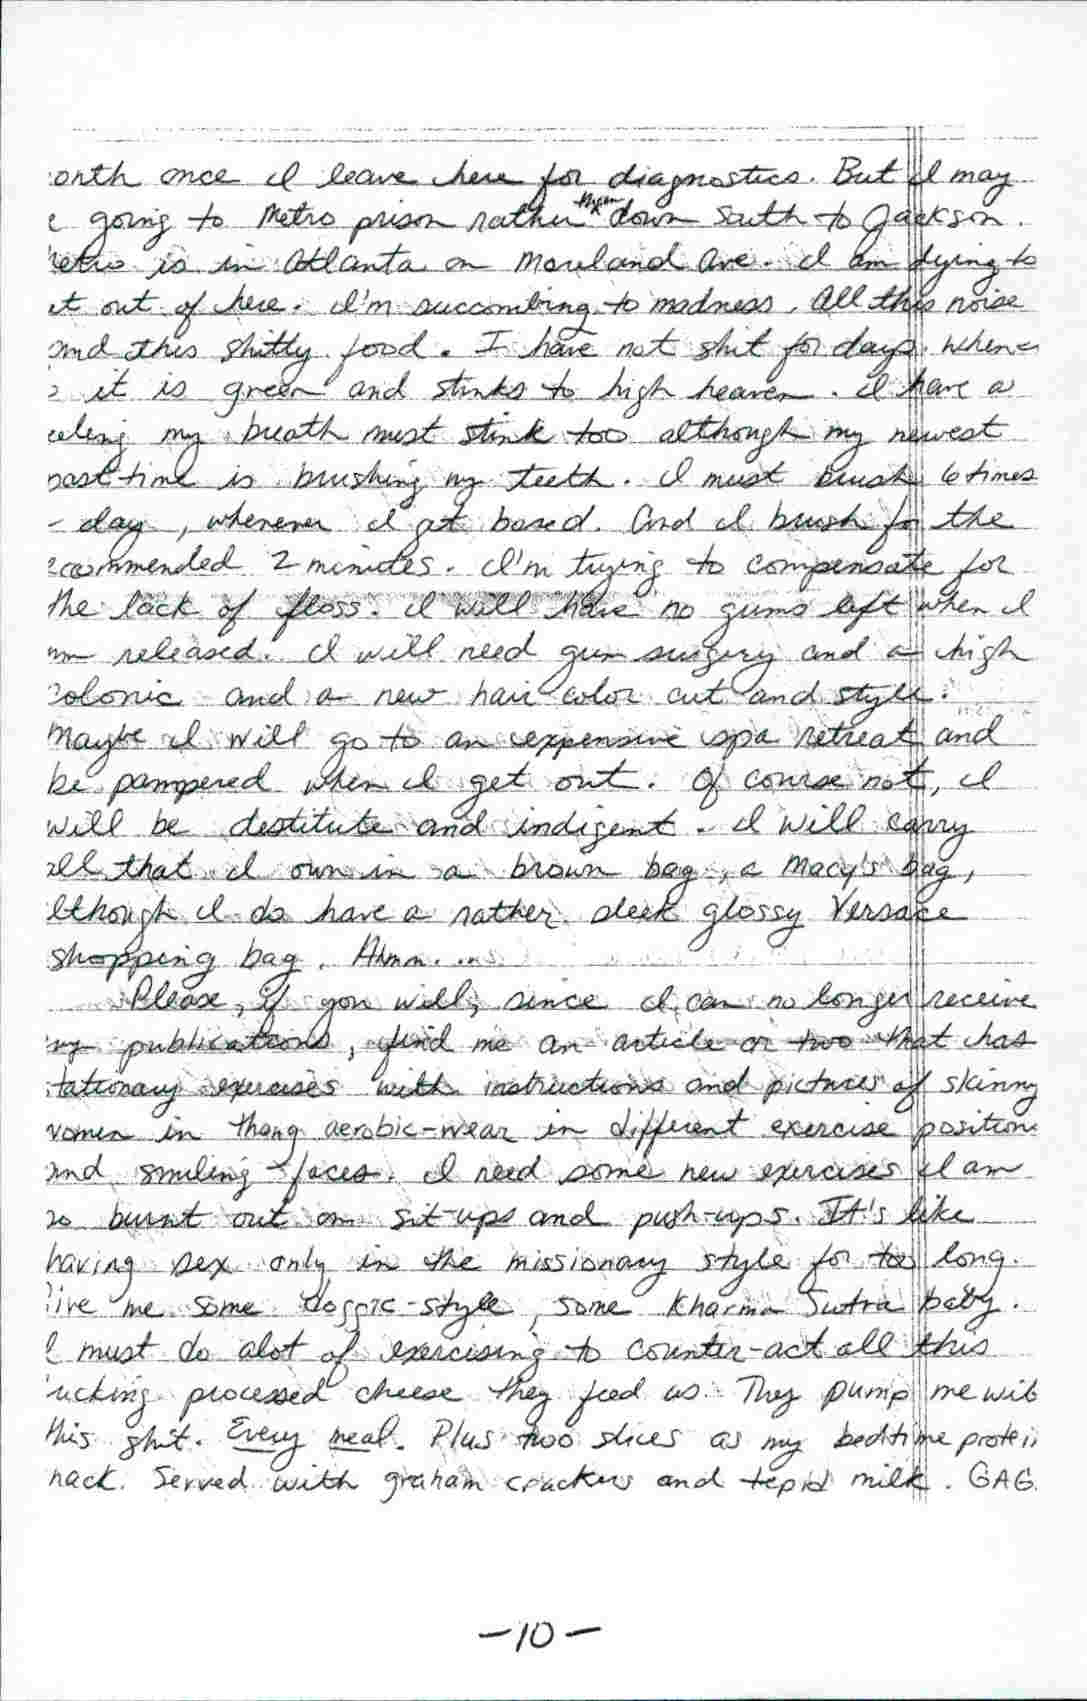 onth once I leave here for diagnostics. But I may
e going to Metro prison rather than down South to Jackson.
etro is in Atlanta on Moreland Ave. I am dying to
et out of here. I'm succombing to madness. All this noise
and this shitty food. I have not shit for days. When
it is green and stinks to high heaven. I have a
eeling my breath must stink too although my newest
past time is brushing my teeth. I must brush 6 times
day, whenever I get bored. And I brush for the
ecommended 2 minutes. I'm trying to compensate for
the lack of floss. I will have no gums left when I
am released. I will need gum surgery and a high
colonic and a new hair color cut and style.
Maybe I will go to an expensive spa retreat and
be pampered when I get out. Of course not, I
will be destitute and indigent. I will carry
all that I own in a brown bag, a Macy's bag,
lthough I do have a rather sleek glossy Versace
shopping bag. Hmm...
Please, if you will, since I can no longer receive
my publications, find me an article or two that has
stationary exercises with instructions and pictures of skinny
women in thong aerobic-wear in different exercise position
and smiling faces. I need some new exercises I am
so burnt out on sit-ups and push-ups. It's like
having sex only in the missionary style for too long.
Give me some doggie-style, some Kharma Sutra baby.
I must do alot of exercising to counter-act all this
ucking processed cheese they feed us. They pump me wit
this shit. Every meal. Plus two slices as my bedtime protein
nack. Served with graham crackers and tepid milk. GAG.
-10-